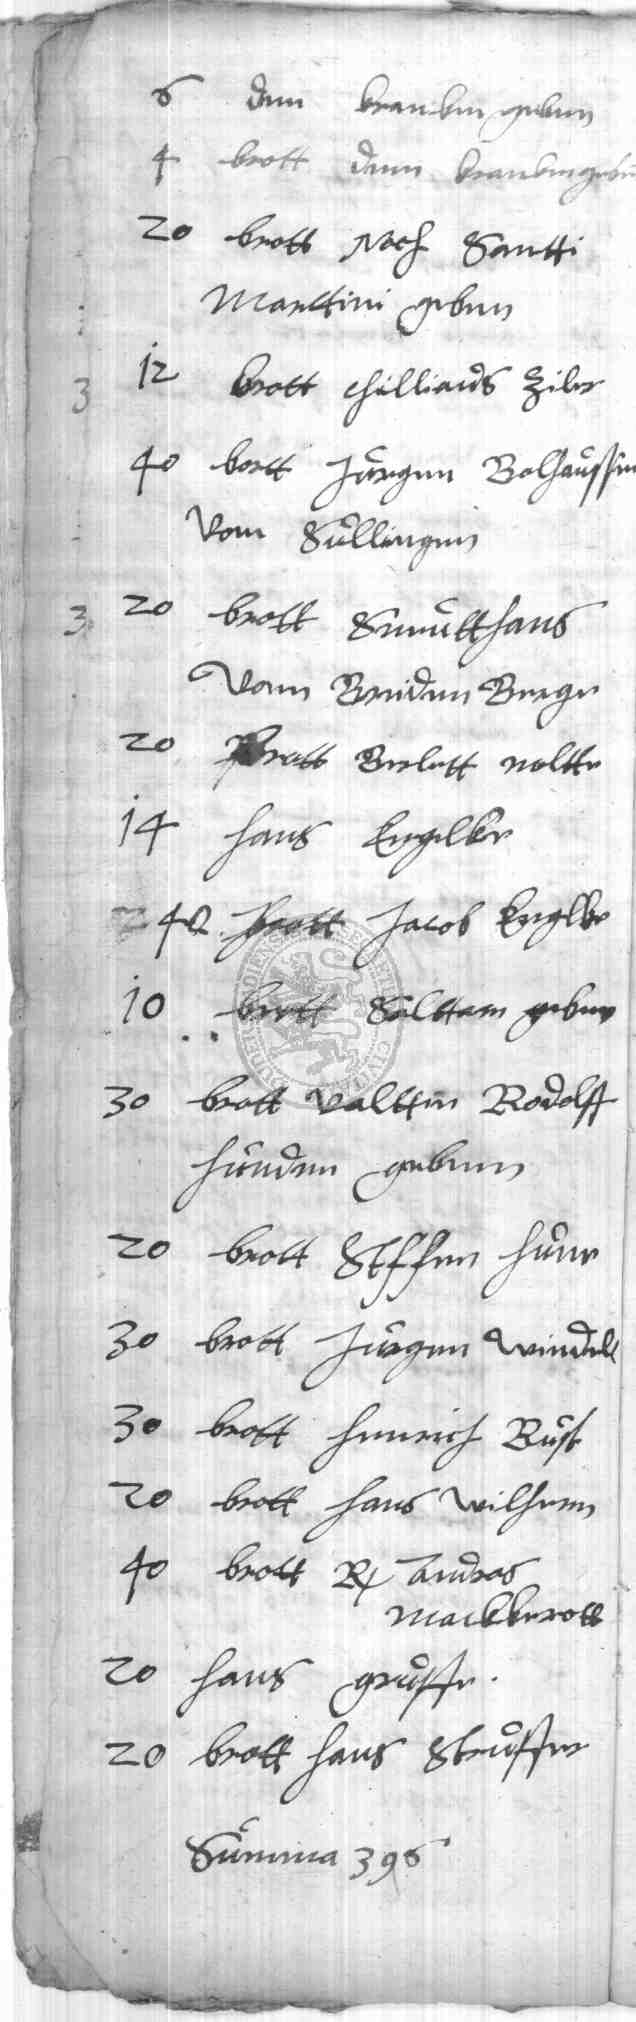 6 den krancken geben
4 brott denn krancken geben
20 brott Noch Santti
Marttini geben
3 12 brott chillianß Ziler
40 brott Jürgen Bolhaussen
Vom Süllingen
3 20 brott Smütthans
Vom Breiden Berge
20 Brott Berlett noltte
14 hans Engelke
40 brott Jacob Engelke
10 brott Salttam geben
30 brott Valttin Rodolff
hünden gebenn
20 brott Steffen hüne
30 brott Jürgen Windell
30 brott Henrich Rüst
20 brott hans Wilhem
40 brott Andras
Mackkerott
20 hans grüsse.
20 brott hans Strüsser
Summa 396